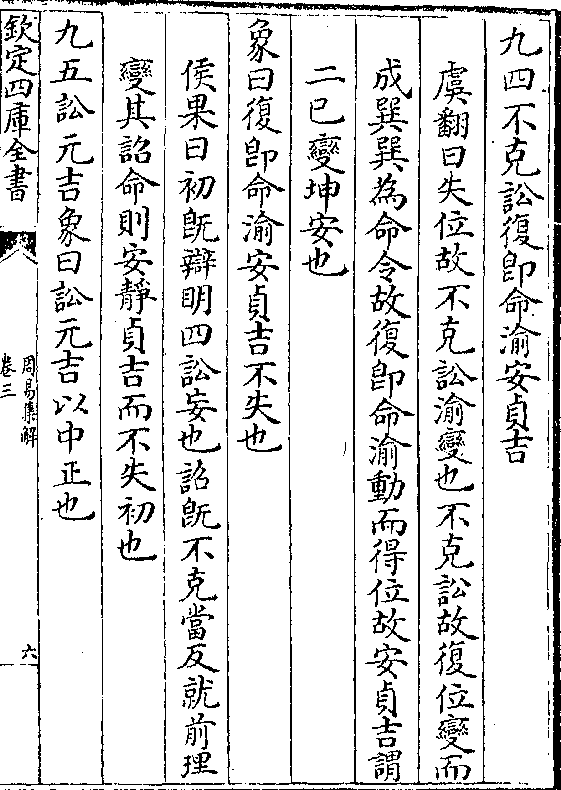 九四不克訟復卽命渝安貞吉
虞翻曰失位故不克訟渝變也不克訟故復位變而
成巽巽為命令故復卽命渝動而得位故安貞吉謂
二已變坤安也
象曰復卽命渝安貞吉不失也
侯果曰初旣辯明四訟妄也訟旣不克當反就前理
變其詔命則安靜貞吉而不失初也
九五訟元吉象曰訟元吉以中正也
欽定四庫全書
周易集解
卷三
六